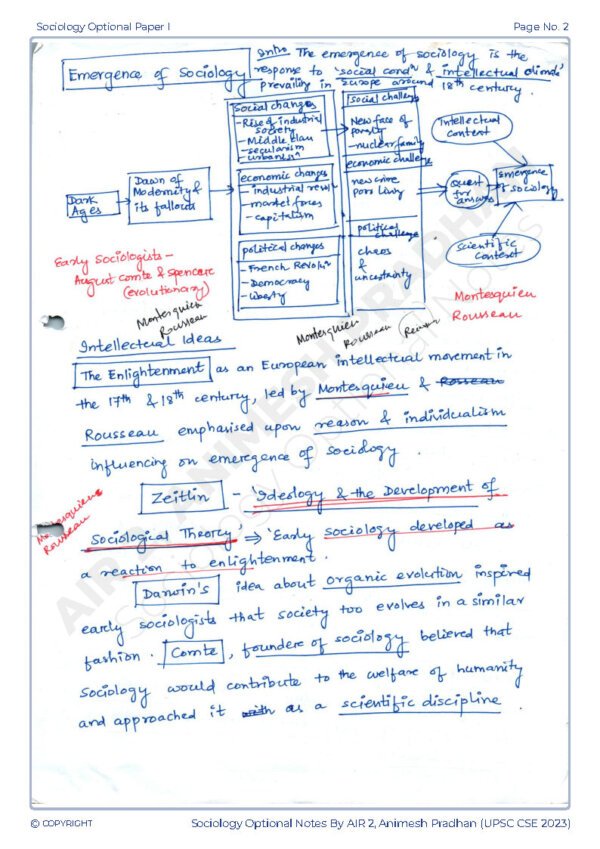 Sociology Optional Paper I
Page No. 2
Emergence of Sociology
Intro. The emergence of sociology is the
response to 'social condn & intellectual climate'
prevailing in Europe around 18th century.
Social changes
- Rise of industrial
society
- Middle class
- secularism
urbanisn
economic changes
- industrial revn
- market forces
- capitalism
political changes
- French Revoln
- Democracy
- liberty
social challenge
New face of
poverty
- nuclear family
economic challenge
new crime
poor living
political
challenge
chaos
&
uncertainty
Dark
Ages
Dawn of
Modernity &
its fallouts
Intellectual
context
Quest
for answers
emergence
of sociology
Scientific
context
Early Sociologists -
August Comte & Spencer
(evolutionary)
Montesquieu
Rousseau
Montesquieu
Rousseau
(Reason
Montesquieu
Rousseau
Intellectual Ideas
The Enlightenment as an European intellectual movement in
the 17th & 18th century, led by Montesquieu &
Rousseau emphasised upon reason & individualism
influencing on emergence of sociology.
Zeitlin - 'Ideology & the Development of
Sociological Theory' ⇒ 'Early sociology developed as
a reaction to enlightenment.
Montesquieu
Rousseau
Darwin's idea about organic evolution inspired
early sociologists that society too evolves in a similar
fashion. Comte, founder of sociology believed that
sociology would contribute to the welfare of humanity
and approached it as a scientific discipline.
AIR 2, ANIMESH PRADHAN
Sociology Optional Notes
© COPYRIGHT
Sociology Optional Notes By AIR 2, Animesh Pradhan (UPSC CSE 2023)